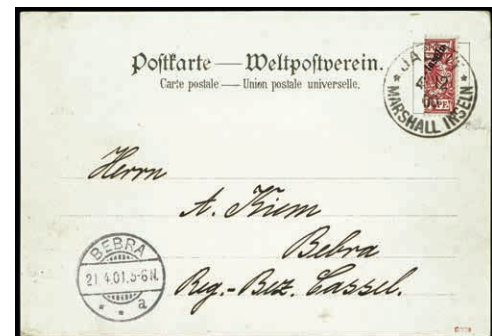 Postkarte — Weltpostverein.
Carte postale — Union postale universelle.
MARSHALL INSELN
Herrn
A. Kiem
Bebra
Reg.-Bez. Cassel.
BEBRA
21.4.01.5-6N.
a